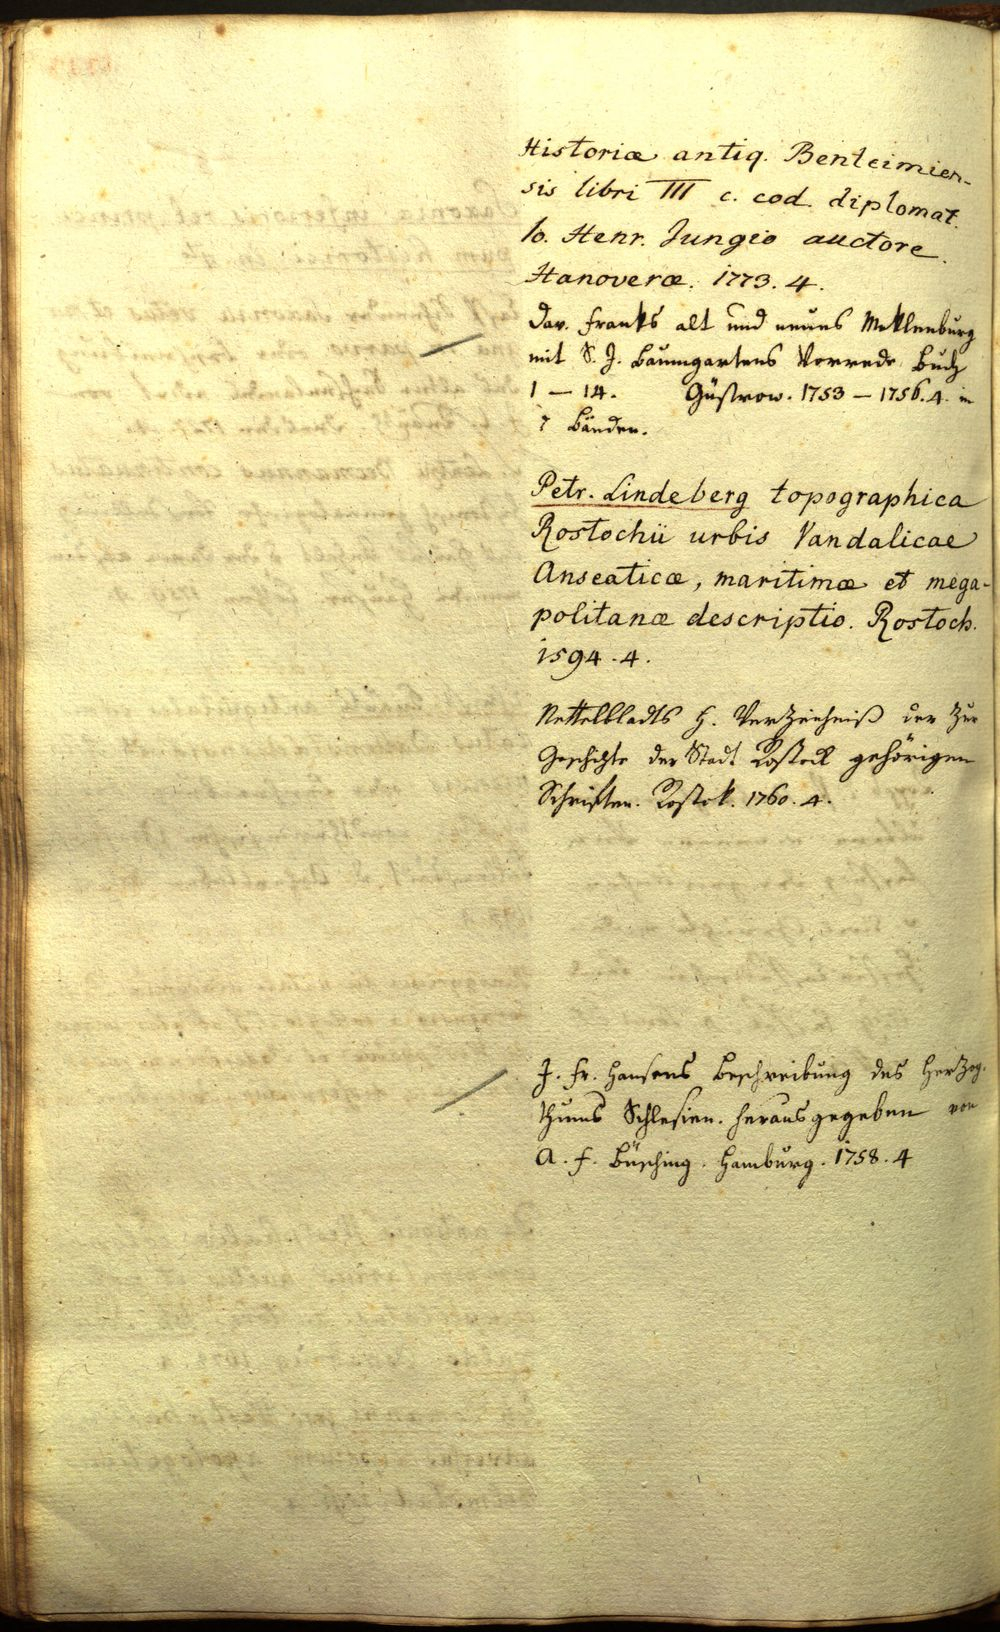 Historiæ antiq. Benteimien-
sis libri III c. cod. diplomat.
Io. Henr. Jungio auctore.
Hanoveræ. 1773. 4.
Dav. Franks alt und neues Meklenburg
mit S. J. Baumgartens Vorrede Buch
1 — 14. Güstrow. 1753 — 1756. 4. in
7 Bänden.
Petr. Lindeberg topographica
Rostochii urbis Vandalicae
Anseaticæ, maritimæ et mega-
politanæ descriptio. Rostoch.
1594. 4.
Nettelbladts H. Verzeichniß der zur
Geschichte der Stadt Rostock gehörigen
Schriften. Rostok. 1760. 4.
J. Fr. Hansens Beschreibung des Herzog-
thums Schlesien. herausgegeben von
A. F. Büsching. Hamburg. 1758. 4